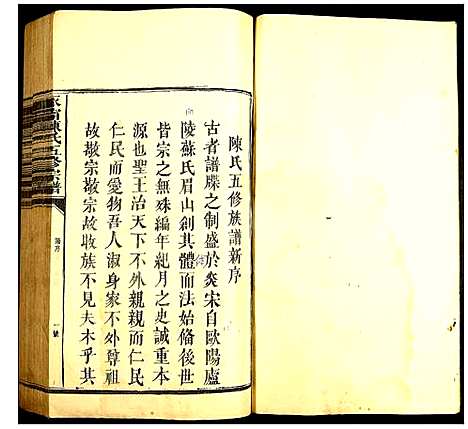 陳氏五修族譜新序
古者譜牒之制盛於炎宋自歐陽廬
陵蘇氏眉山創其體而法始備後世
皆宗之無殊編年紀月之史誠重本
源也聖王治天下不外親親而仁民
仁民而愛物吾人淑身家不外尊祖
故敬宗敬宗故收族不見夫木乎其
陳氏五修宗譜
序
一